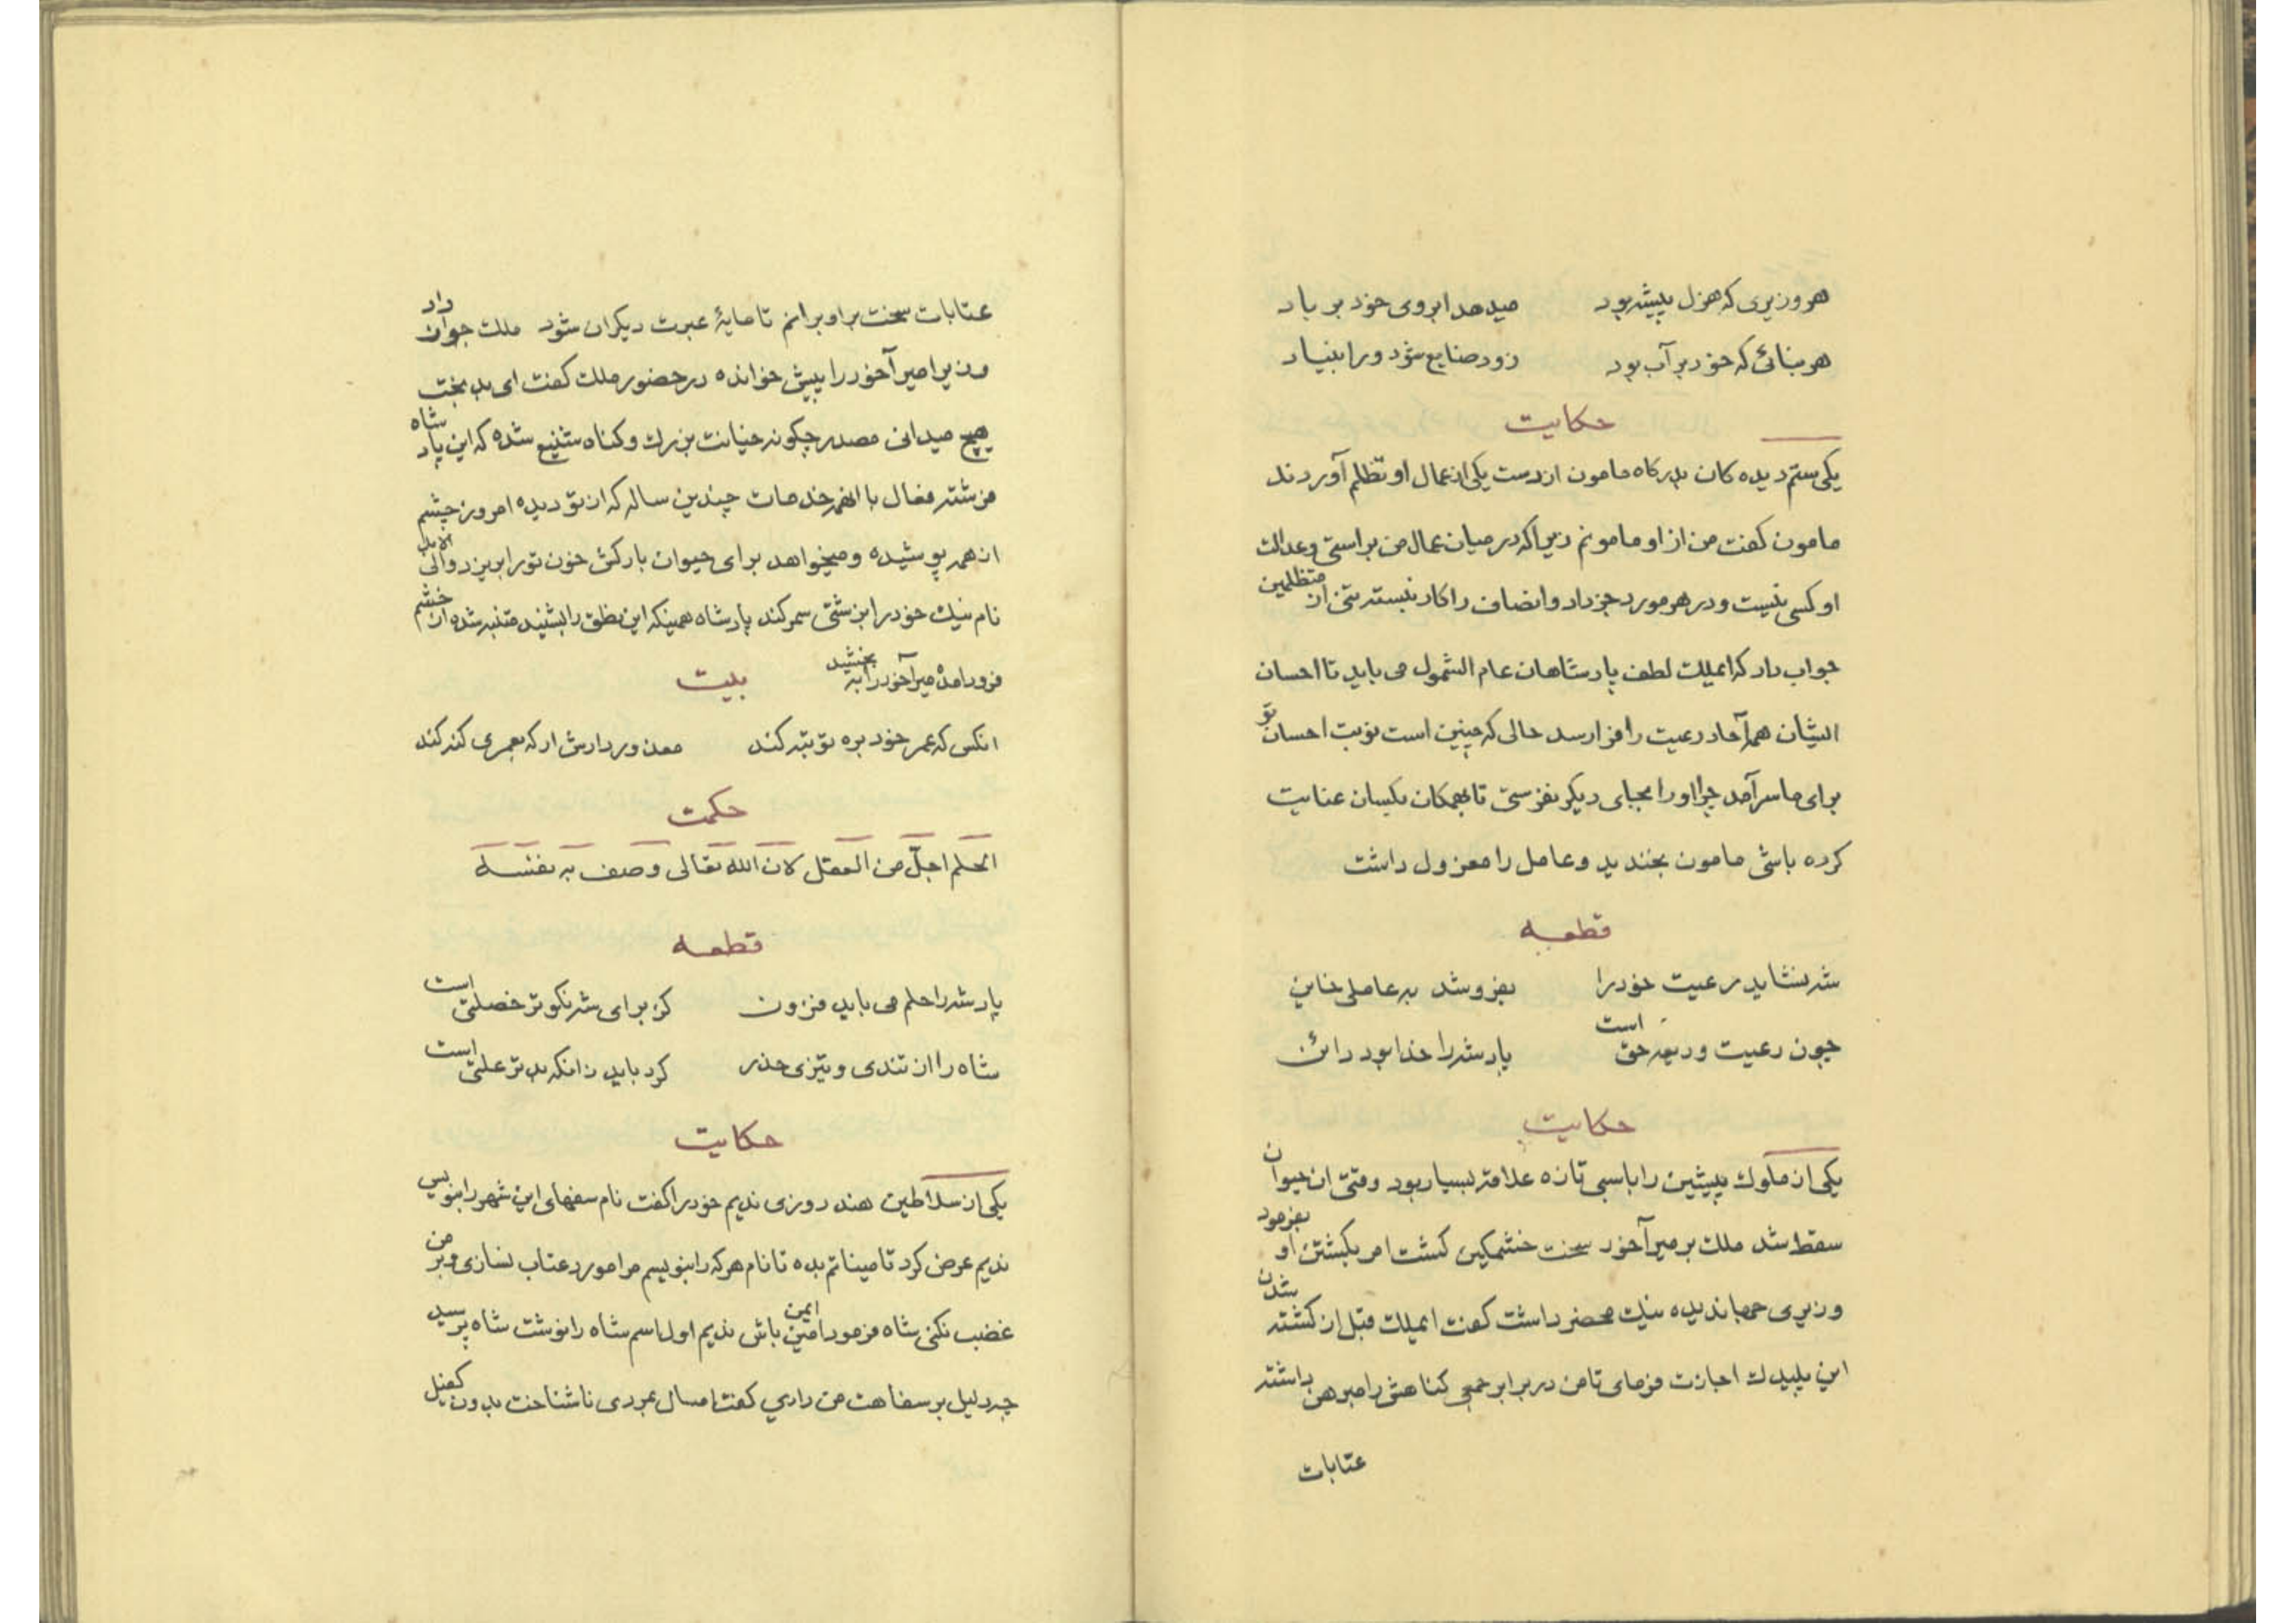 هر وزیری که هزل پیشه بود میدهد ابروی خود بر باد
هر بنائی که خود بر آب بود زود ضایع شود ورا بنیاد
حکایت
یکی ستم دیده کان بدرکاه مامون از دست یکی از عمال او تظلم آوردند
مامون کفت من از او مامونم زیرا که در میان عمال من براستی و عدالت
او کسی نیست و در هر مورد جز داد و انصاف را کار نبسته تنی از متظلمین
جواب داد که ایملک لطف پادشاهان عام الشمول می باید تا احسان
ایشان همه آحاد رعیت را فرا رسد حالی که چنین است نوبت احسان تو
برای ما سر آمد چرا او را بجای دیکر نفرستی تا بهمکان یکسان عنایت
کرده باشی مامون بخندید و عامل را معزول داشت
قطعه
شه نشاید رعیت خود را بفروشد به عاملی خاین
چون رعیت ودیعه حق است پادشه را خدا بود دائن
حکایت
یکی از ملوک پیشین را با سبی تازه علاقه بسیار بود وقتی ان حیوان
سقط شد ملک بر میر آخور سخت خشمکین کشت امر بکشتن او بفرمود
وزیری جهاندیده نیک محضر داشت کفت ایملک قبل از کشته شدن
این پلیدک اجازت فرمای تا من در برابر جمعی کناهش را مبرهن داشته
عتابات
عتابات سخت بر او برانم تا مایهٔ عبرت دیکران شود ملک جواز داد
وزیر امیر آخور را پیش خوانده در حضور ملک کفت ای بد بخت
هیچ میدانی مصدر چکونه خیانت بزرک و کناه شنیع شده که این پاد شاه
فرشته فعال با انهمه خدمات چندین ساله که از تو دیده امروز چشم
از همه پوشیده و میخواهد برای حیوان بارکش خون تو را بریزد و الی الابد
نام نیک خود را بزشتی سمر کند پادشاه همینکه این نطق را بشنید متنبه شده از خشم
فرود امده میر آخور را به بخشید بیت
انکس که عمر خود بره تو تبه کند معذور دارش ار که بعمری کنه کند
حکمت
الحلم اجلّ من العقل لان الله تعالی وصف به نفسه
قطعه
پادشه را حلم می باید فزون کز برای شه نکوتر خصلتی است
شاه را از تندی و تیزی حذر کرد باید زانکه بدتر علتی است
حکایت
یکی از سلاطین هند روزی ندیم خود را کفت نام سفهای این شهر را بنویس
ندیم عرض کرد تامیناتم بده تا نام هر که را بنویسم مرا مورد عتاب نسازی و بر من
غضب نکنی شاه فرمود امین ایمن باش ندیم اول اسم شاه را نوشت شاه پرسید
چه دلیل بر سفاهت من داری کفت امسال بمردی ناشناخت بدون کفیل